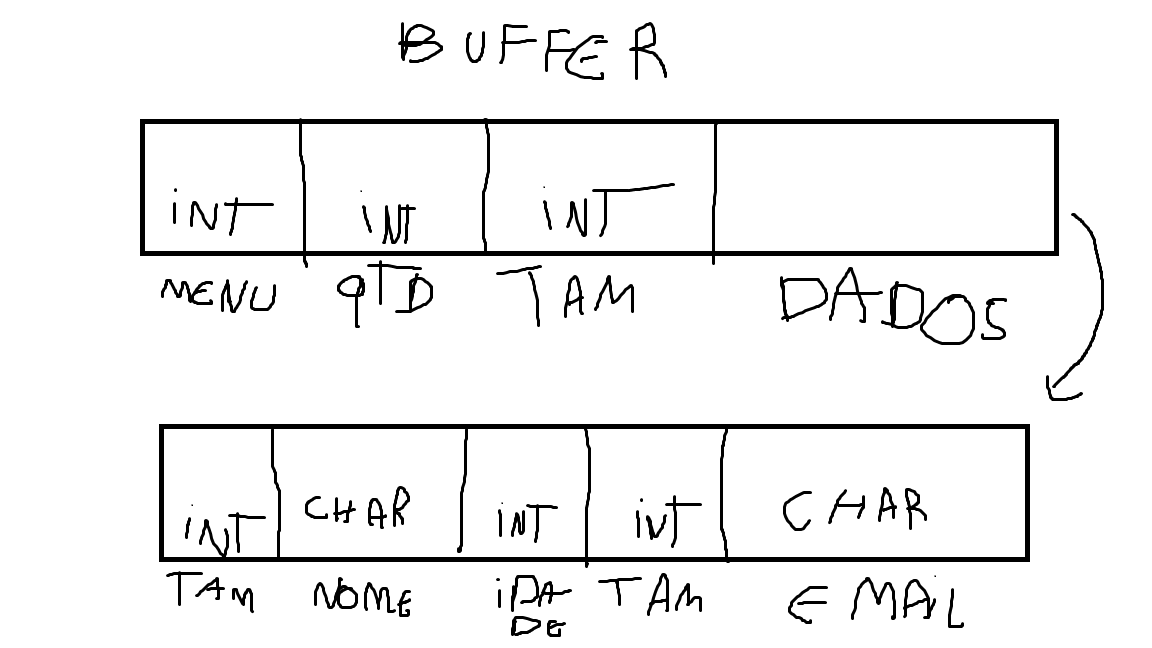 BUFFER
iNT iNT iNT
MENU QTD TAM DADOS
iNT CHAR iNT iNT CHAR
TAM NOME iDA TAM EMAiL
DE